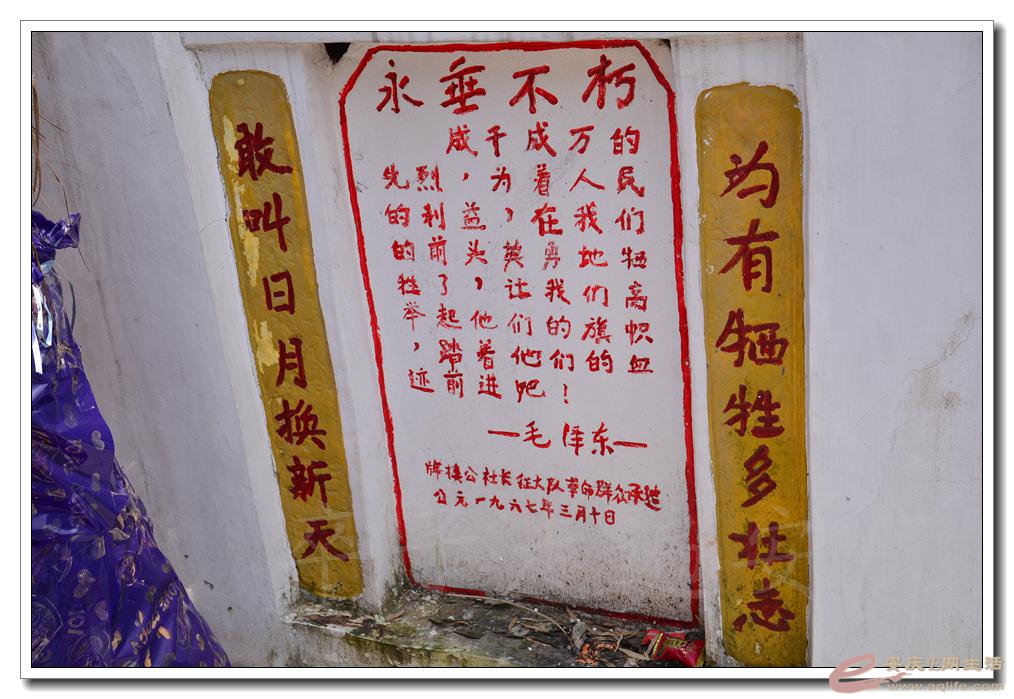 永垂不朽
成千成万的
先烈，为着人民
的利益，在我们
的前头英勇地牺
牲了，让我们高
举起他们的旗帜
，踏着他们的血
迹前进吧！
—毛泽东—
牌楼公社长征大队革命群众承建
公元一九六七年三月十日
为有牺牲多壮志
敢叫日月换新天
www.aqlife.com